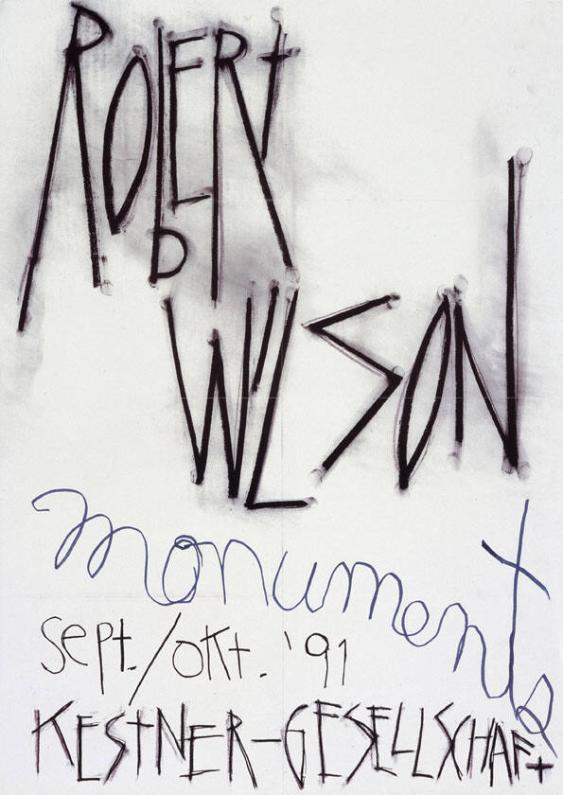 ROBERT
WILSON
monuments
sept./okt. '91
KESTNER-GESELLSCHAFt